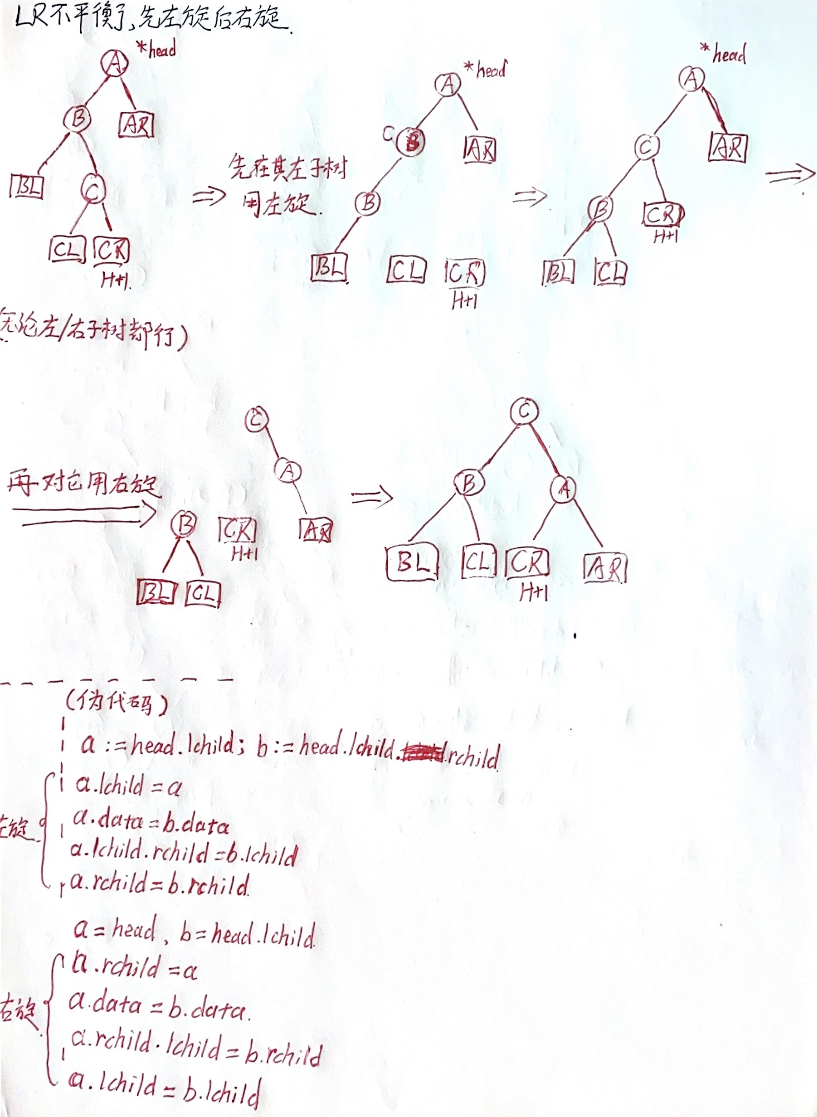 LR不平衡了,先左旋后右旋.
*head
A
B
AR
BL
C
CL
CR
H+1.
先在其左子树
用左旋.
*head
A
C B
AR
B
BL
CL
CR
H+1
*head
A
C
AR
B
CR
H+1
BL
CL
无论左/右子树都行)
再对它用右旋
C
A
B
CR
H+1
AR
BL
CL
C
B
A
BL
CL
CR
H+1
AR
(伪代码)
a := head.lchild; b := head.lchild.rchild
左旋
a.lchild = a
a.data = b.data
a.lchild.rchild = b.lchild
a.rchild = b.rchild.
a = head, b = head.lchild.
右旋
a.rchild = a
a.data = b.data.
a.rchild.lchild = b.rchild
a.lchild = b.lchild